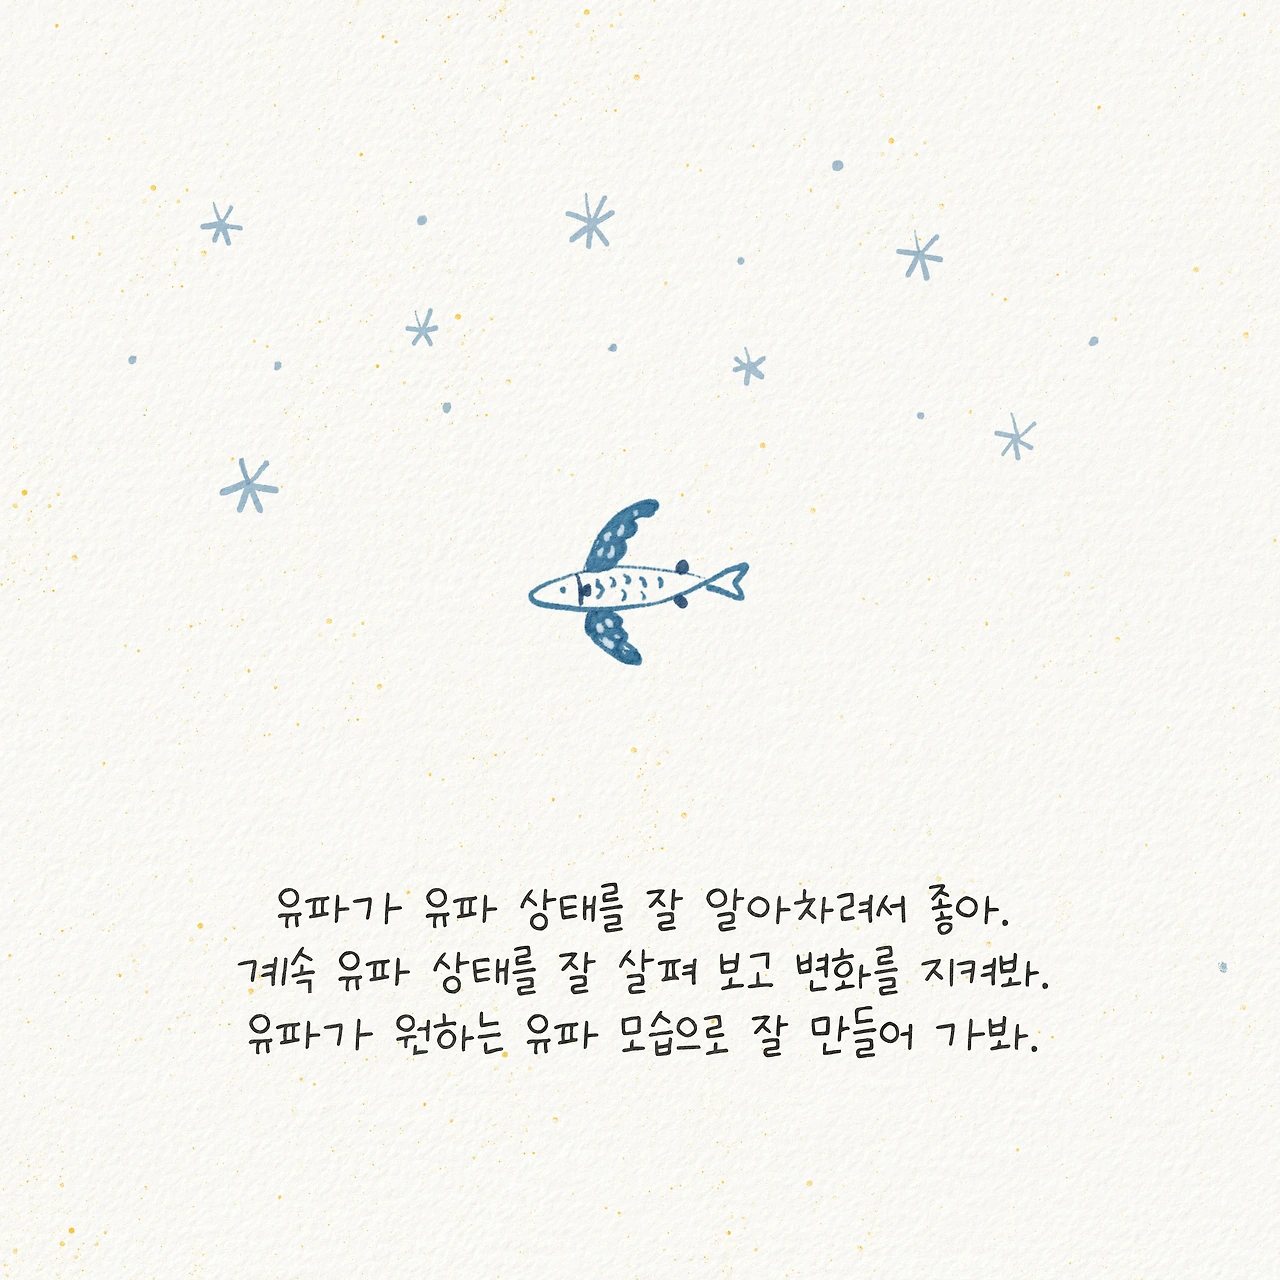 유파가 유파 상태를 잘 알아차려서 좋아.
계속 유파 상태를 잘 살펴 보고 변화를 지켜봐.
유파가 원하는 유파 모습으로 잘 만들어 가봐.